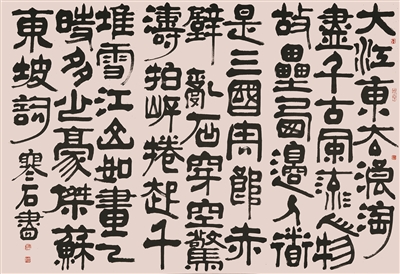 大江東去浪淘
盡千古風流人物
故壘西邊人道
是三國周郎赤
壁亂石穿空驚
濤拍岸捲起千
堆雪江山如畫一
時多少豪傑蘇
東坡詞 寒石書